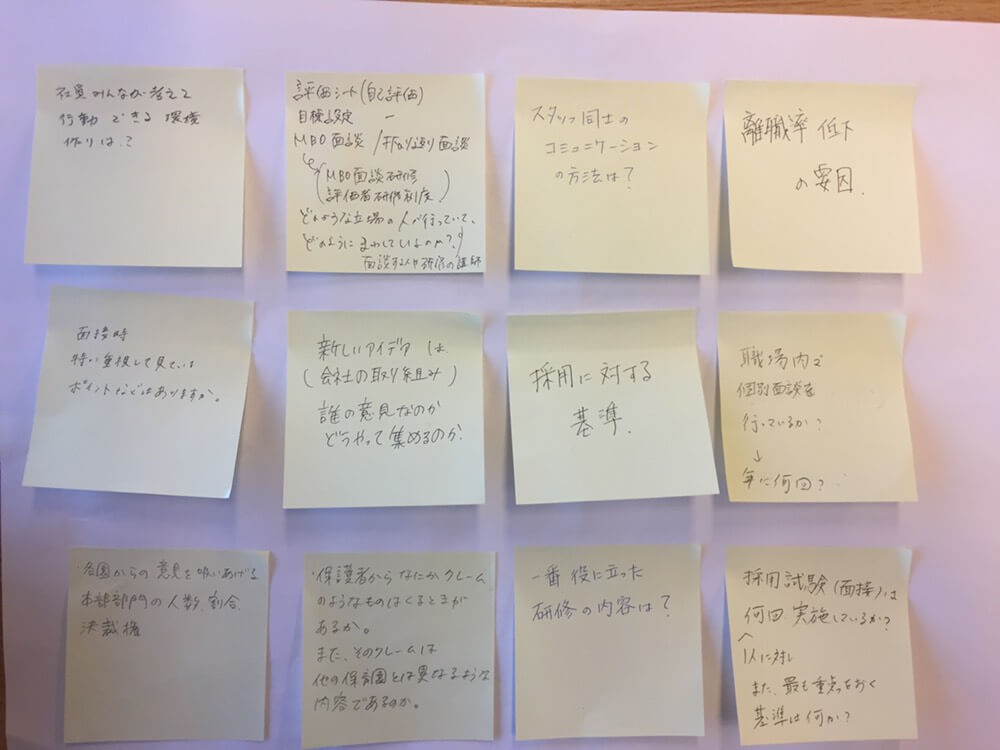 社員みんなが考えて
行動できる環境
作りは?
評価シート(自己評価)
目標設定 ー
MBO面談/折り返り面談
(MBO面談研修
評価者研修制度)
どのような立場の人が行っていて、
どのようにまわしているのか?
面談する人や研修の講師
スタッフ同士の
コミュニケーション
の方法は?
離職率低下
の要因.
面接時
特に重視して見ている
ポイントなどはありますか。
新しいアイデアは
(会社の取り組み)
誰の意見なのか
どうやって集めるのか.
採用に対する
基準.
職場内で
個別面談を
行っているか?
↓
年に何回?
・各園からの意見を吸いあげる
本部部門の人数.割合.
決裁権
・保護者からなにかクレーム
のようなものはくるときが
あるか。
また、そのクレームは
他の保育園とは異なるような
内容であるのか。
一番役に立った
研修の内容は?
採用試験(面接)は
何回実施しているか?
1人に対し
また、最も重点をおく
基準は何か?